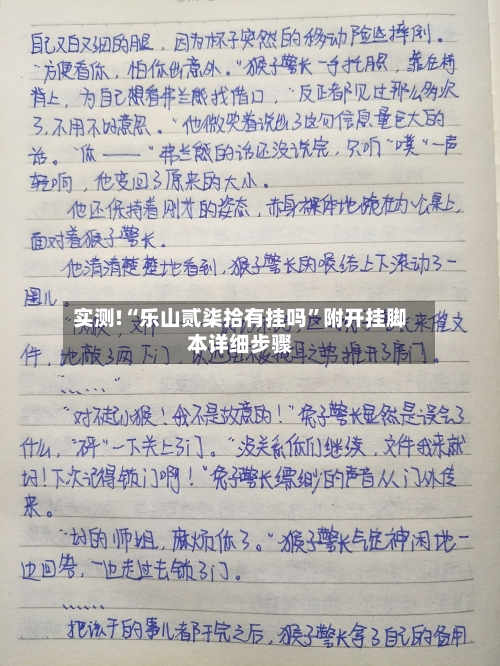 自己又白又细的腿,因为杯子突然的移动险些摔倒。
“方便看你,怕你出意外。”猴子警长一手托腮,靠在椅
背上,为自己想看弗兰熊找借口,“反正都见过那么多次
了,不用不好意思。”他微笑着说出了这句信息量巨大的
话。“你——”弗兰熊的话还没说完,只听“噗”一声
轻响,他变回了原来的大小。
他还保持着刚才的姿态,赤身裸体地跪在办公桌上,
面对着猴子警长。
他清清楚楚地看到,猴子警长的喉结上下滚动了一
圈儿。
实测!“乐山贰柒拾有挂吗”附开挂脚
本详细步骤
来催文
件,地敲了两下门,
推开了房门。
“……”
“对不起小猴!我不是故意的!”兔子警长显然是误会了
什么,“砰”一下关上了门。“没关系你们继续,文件我来就
好!下次记得锁门啊!”兔子警长缥缈的声音从门外传
来。
“好的师姐,麻烦你了。”猴子警长气定神闲地一
边回答,一边走过去锁了门。
……
把该干的事儿都干完之后,猴子警长拿了自己的备用